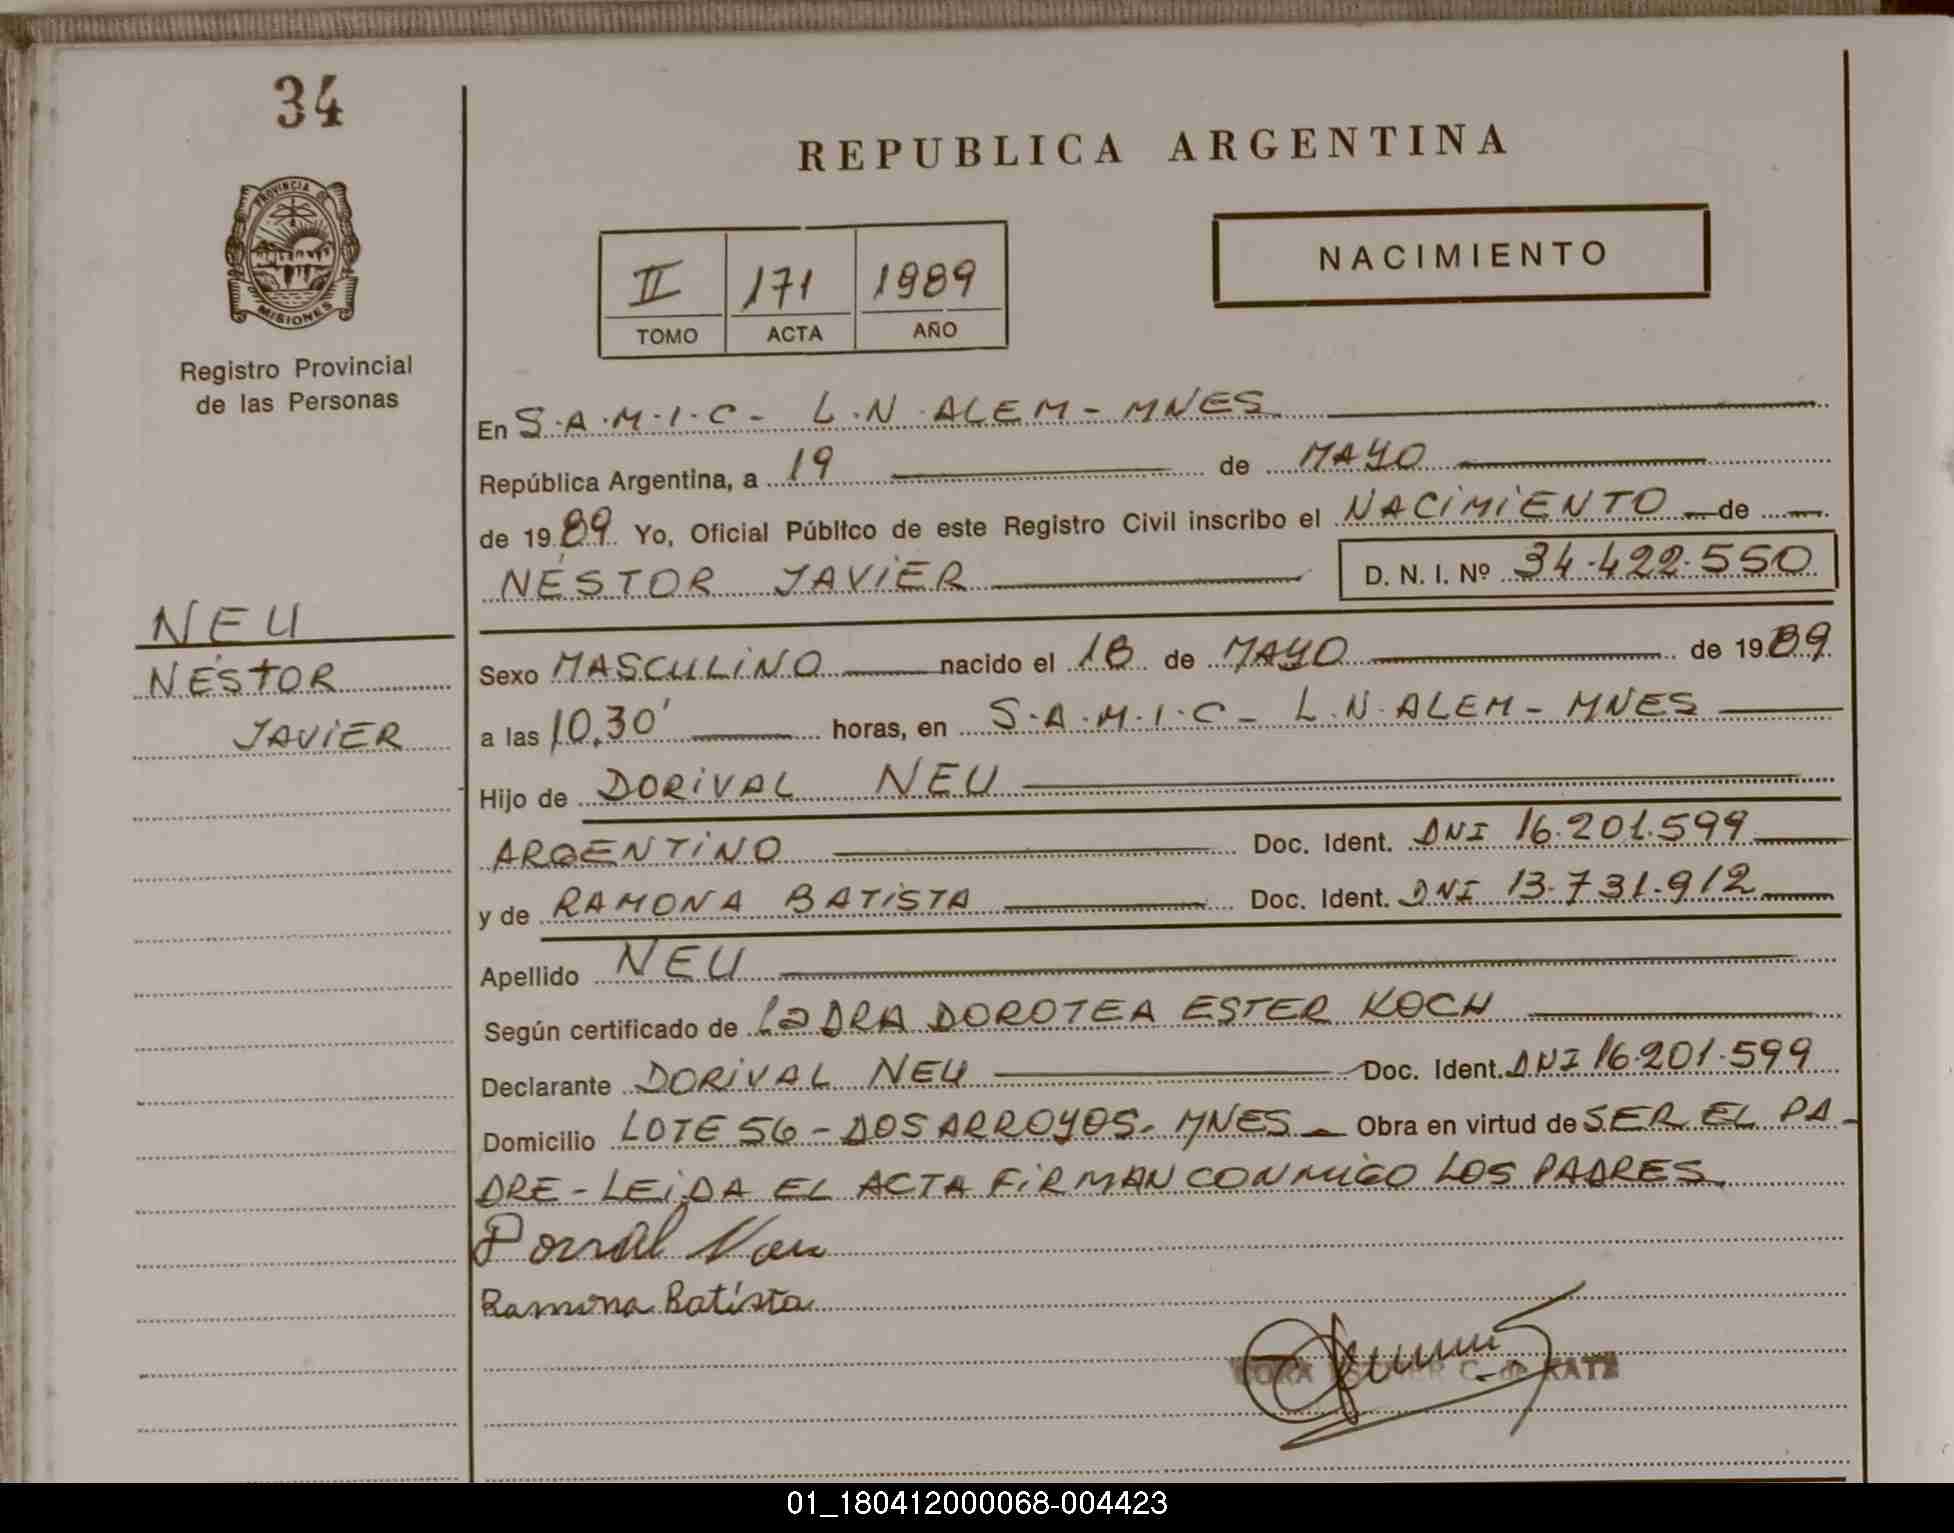 34
PROVINCIA DE
MISIONES
Registro Provincial
de las Personas
NEU
NESTOR
JAVIER
REPUBLICA ARGENTINA
II 171 1989
TOMO ACTA AÑO
NACIMIENTO
En S.A.M.I.C - L.N. ALEM - MNES
República Argentina, a 19 de MAYO
de 1989 Yo, Oficial Público de este Registro Civil inscribo el NACIMIENTO de
NESTOR JAVIER D. N. I. Nº 34.422.550
Sexo MASCULINO nacido el 18 de MAYO de 1989
a las 10,30' horas, en S.A.M.I.C - L.N. ALEM - MNES
Hijo de DORIVAL NEU
ARGENTINO Doc. Ident. DNI 16.201.599
y de RAMONA BATISTA Doc. Ident. DNI 13.731.912
Apellido NEU
Según certificado de la DRA DOROTEA ESTER KOCH
Declarante DORIVAL NEU Doc. Ident. DNI 16.201.599
Domicilio LOTE 56 - DOS ARROYOS. MNES Obra en virtud de SER EL PA-
DRE - LEIDA EL ACTA FIRMAN CONMIGO LOS PADRES.
Ramona Batista
C. de KATZ
01_180412000068-004423